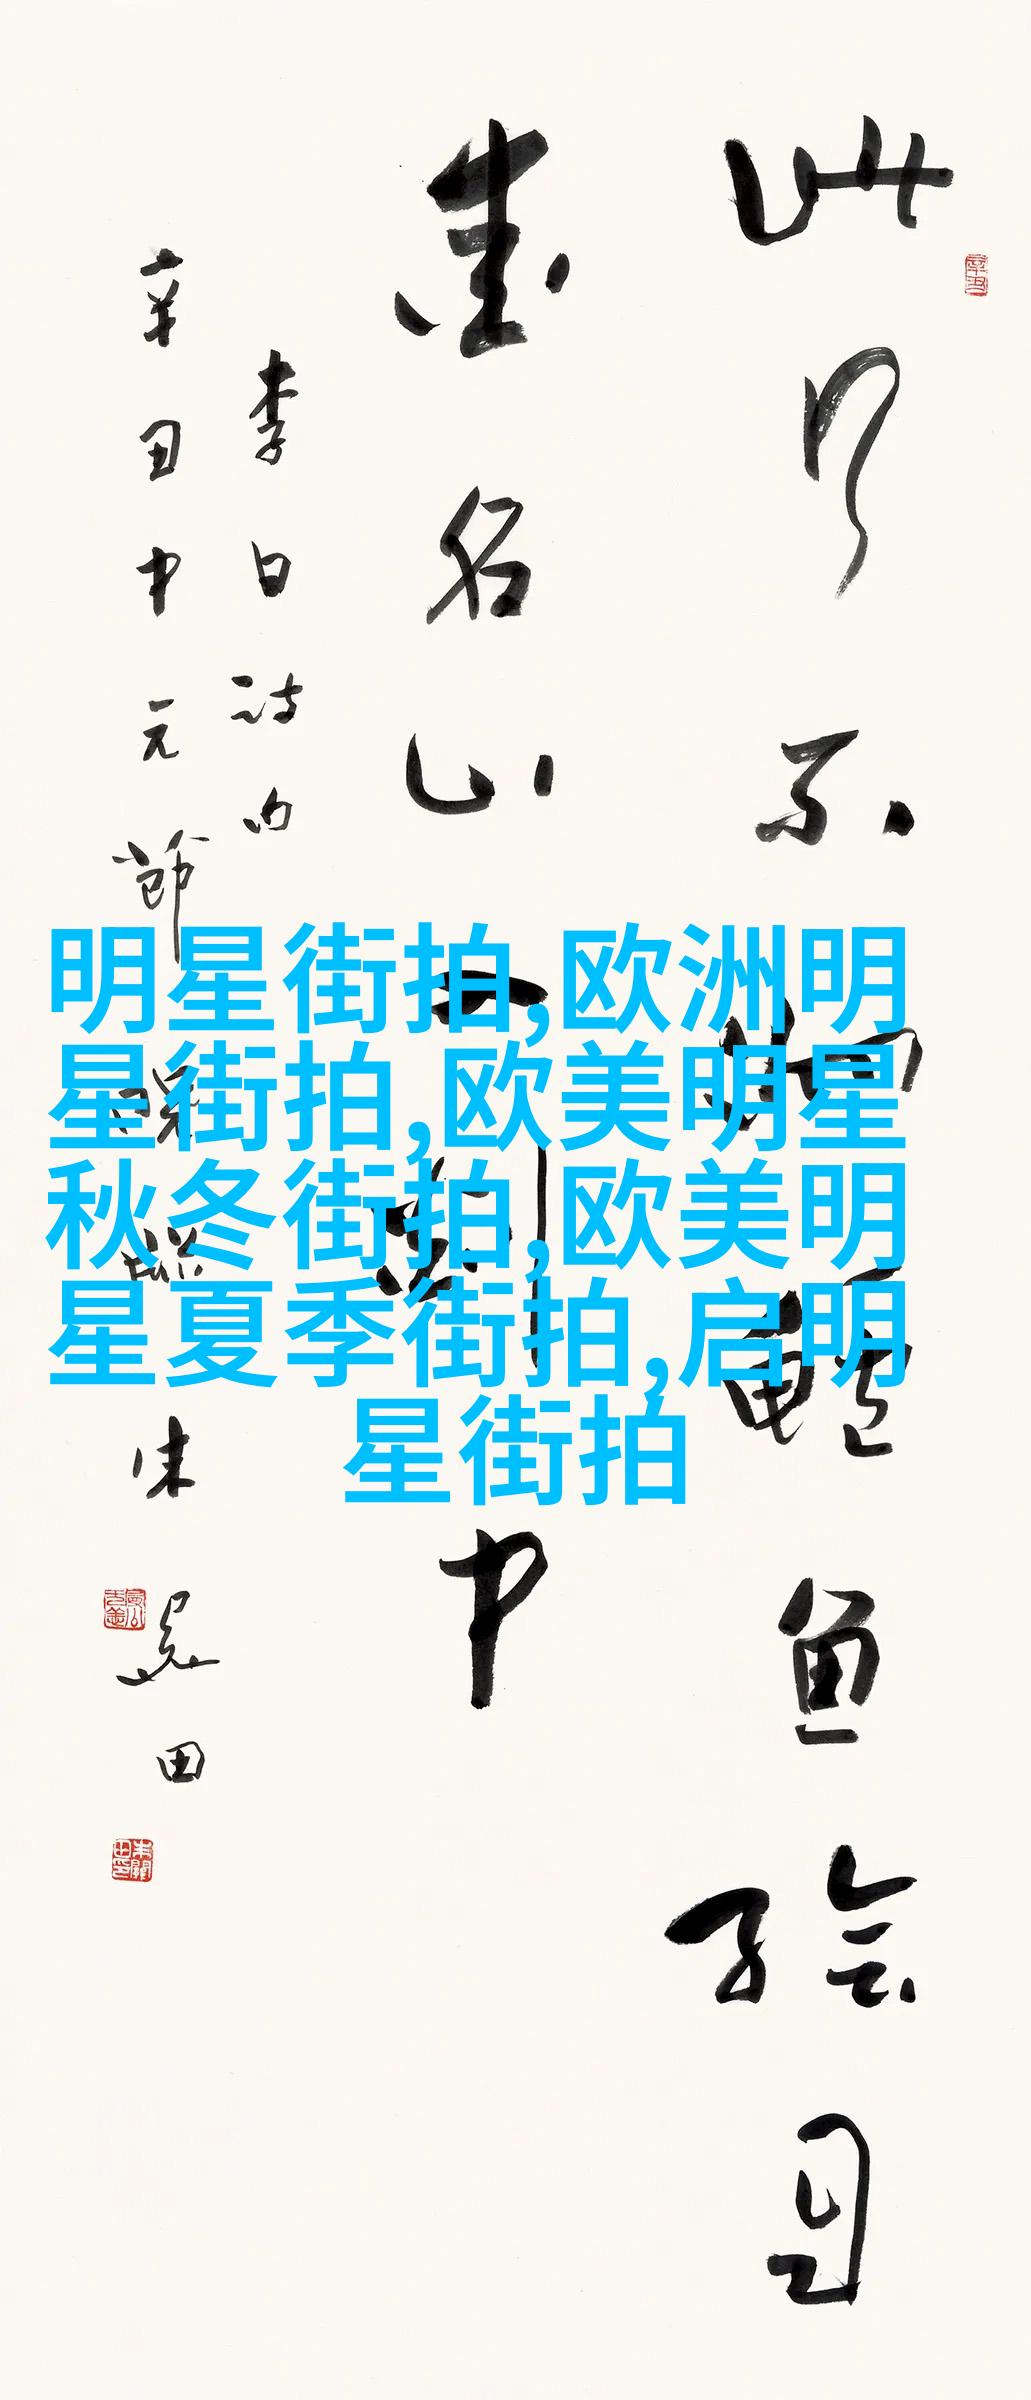 此行不为鲈鱼鲙自
爱名山入剡中
李白诗句
辛丑中元节
朱关田
明星街拍,欧洲明
星街拍,欧美明星
秋冬街拍,欧美明
星夏季街拍,启明
星街拍